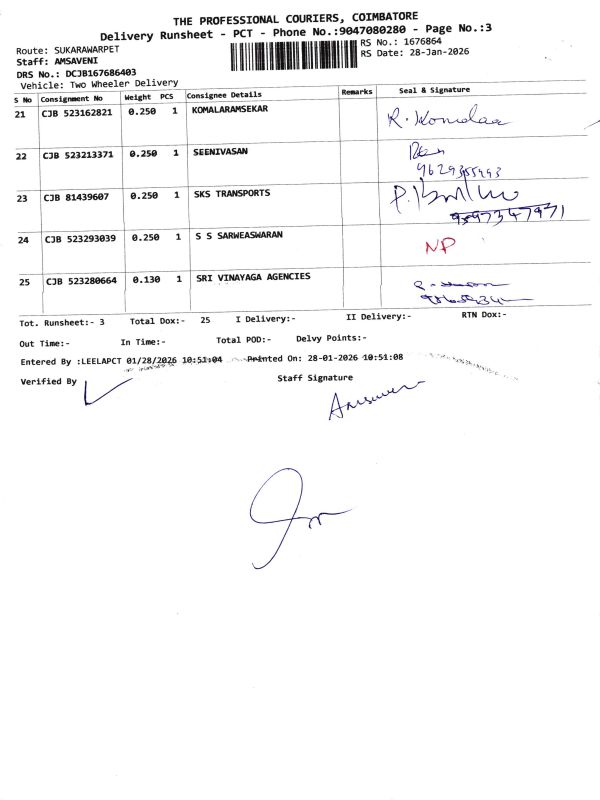 THE PROFESSIONAL COURIERS, COIMBATORE
Delivery Runsheet - PCT - Phone No.:9047080280 - Page No.:3
Route: SUKARAWARPET
RS No.: 1676864
Staff: AMSAVENI
RS Date: 28-Jan-2026
DRS No.: DCJB167686403
Vehicle: Two Wheeler Delivery
S No Consignment No Weight PCS Consignee Details Remarks Seal & Signature
21 CJB 523162821 0.250 1 KOMALARAMSEKAR R. Komalaa
22 CJB 523213371 0.250 1 SEENIVASAN
9629355993
23 CJB 81439607 0.250 1 SKS TRANSPORTS
24 CJB 523293039 0.250 1 S S SARWEASWARAN NP
25 CJB 523280664 0.130 1 SRI VINAYAGA AGENCIES
Tot. Runsheet:- 3 Total Dox:- 25 I Delivery:- II Delivery:- RTN Dox:-
Out Time:- In Time:- Total POD:- Delvy Points:-
Entered By :LEELAPCT 01/28/2026 10:51:04 Printed On: 28-01-2026 10:51:08
Verified By Staff Signature